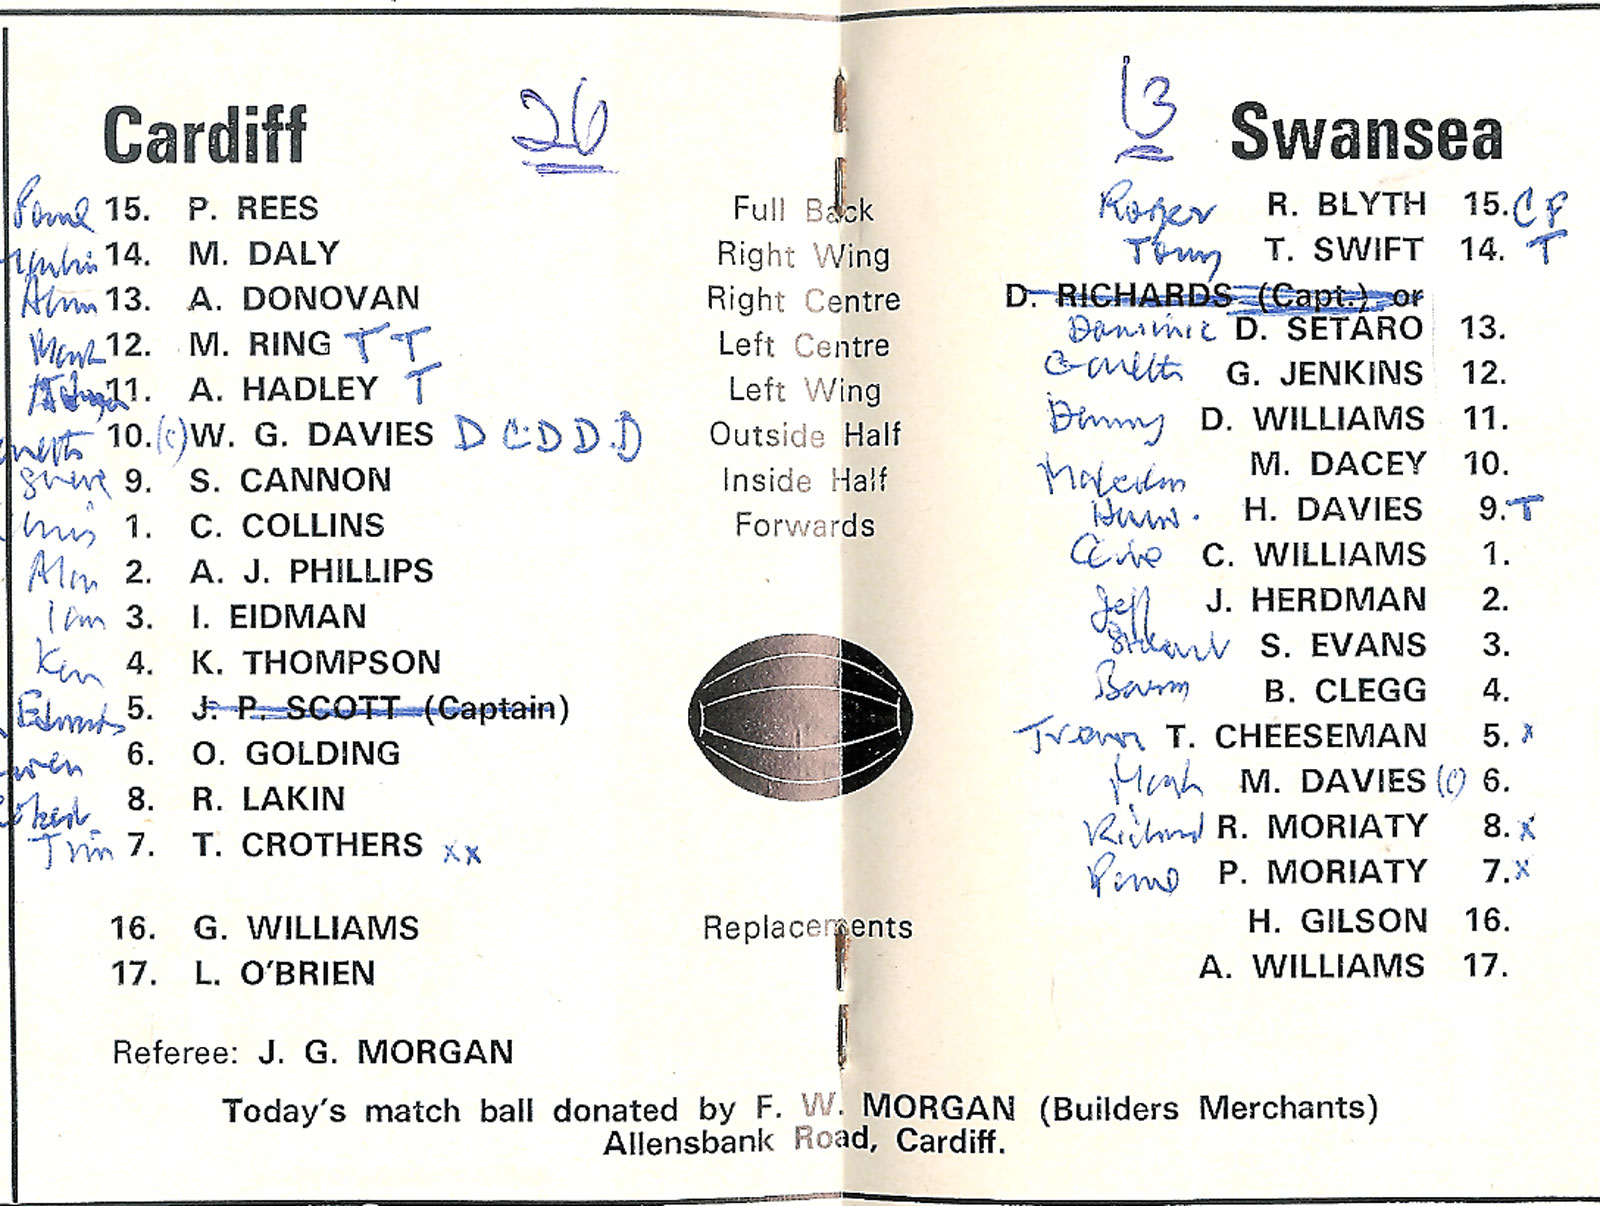 Cardiff 26 13 Swansea
Paul 15. P. REES Full Back Roger R. BLYTH 15. C P
14. M. DALY Right Wing Tony T. SWIFT 14. T
Alun 13. A. DONOVAN Right Centre D. RICHARDS (Capt.) or
Dominic D. SETARO 13.
Mark 12. M. RING T T Left Centre Gareth G. JENKINS 12.
11. A. HADLEY T Left Wing Danny D. WILLIAMS 11.
10. (c) W. G. DAVIES D C D D D Outside Half Malcolm M. DACEY 10.
Steve 9. S. CANNON Inside Half Huw H. DAVIES 9. T
1. C. COLLINS Forwards Clive C. WILLIAMS 1.
Alan 2. A. J. PHILLIPS Jeff J. HERDMAN 2.
Ian 3. I. EIDMAN Stuart S. EVANS 3.
Ken 4. K. THOMPSON Barry B. CLEGG 4.
Edwards 5. J. P. SCOTT (Captain) Trevor T. CHEESEMAN 5. x
Owen 6. O. GOLDING Mark M. DAVIES (c) 6.
8. R. LAKIN Richard R. MORIATY 8. x
Tim 7. T. CROTHERS xx Paul P. MORIATY 7. x
16. G. WILLIAMS Replacements H. GILSON 16.
17. L. O'BRIEN A. WILLIAMS 17.
Referee: J. G. MORGAN
Today's match ball donated by F. W. MORGAN (Builders Merchants)
Allensbank Road, Cardiff.